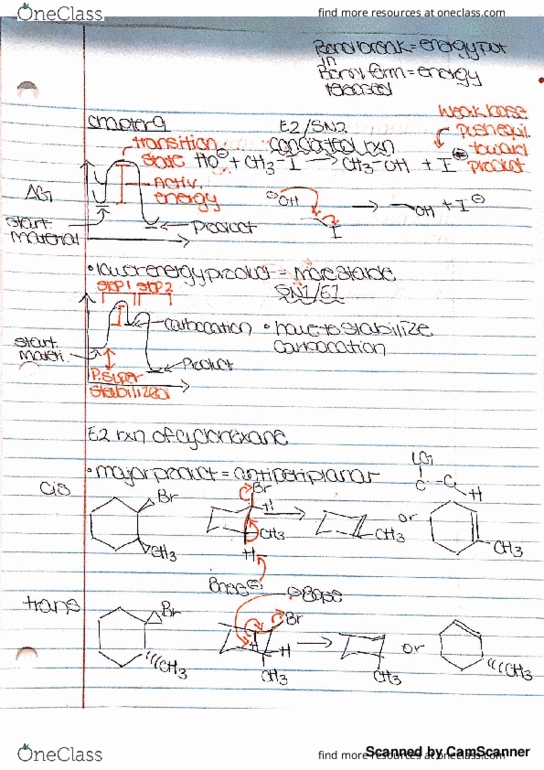 OneClass
find more resources at oneclass.com
Bond break = energy put
in
Bond form = energy
released
Chapter 9
E2/SN2
concerted rxn
weak base
push equi.
toward
product
transition
state
HO⊖ + CH3-I → CH3-OH + I⊖
Activ.
energy
ΔG
start.
material
Product
⊖OH
I
→
OH + I⊖
• lower energy product = more stable
SN1/E1
step 1 step 2
carbocation
• have to stabilize
carbocation
start.
materi.
Product
stabilized
E2 rxn of cyclohexane
• major product = antiperiplanar
LG
C-C
H
cis
Br
CH3
Br
H
CH3
H
Base⊖
CH3
or
CH3
trans
Br
CH3
⊖Base
Br
H
H
CH3
CH3
or
CH3
OneClass
find more resources at oneclass.com
Scanned by CamScanner